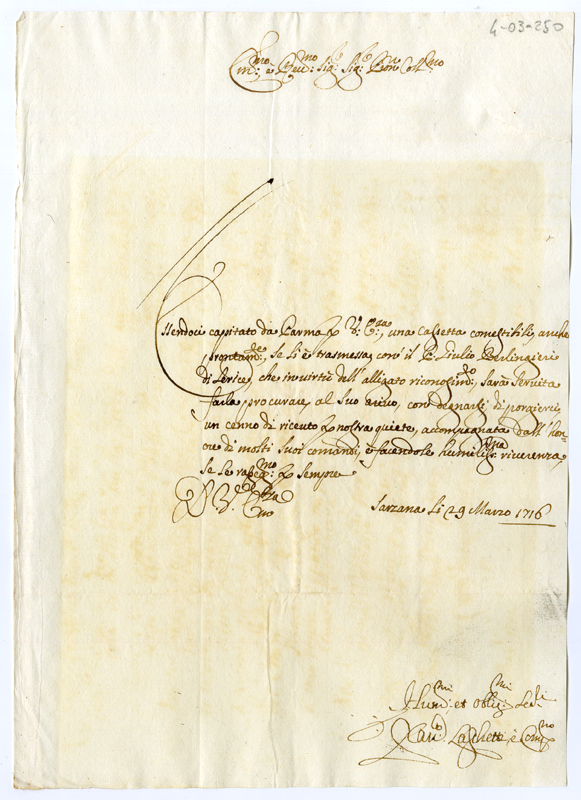 4-03-250
Em:mo e Rev:mo Sig:re Sig:re Pron Col:mo
Essendoci capitato da Parma p V: Em:za, una Cassetta comestibili, anche
prontam:te, Se li è trasmessa, con il P: Giulio Berlingieri
di Lerice, che in virtù dell'alligato riconoscim:to, Sarà Servita
farla procurare, al Suo arivo, con degnarsi di porgierci,
un cenno di riceuto p nostra quiete, accompagnata dall'hon-
ore di molti Suoi comandi, e facendole humiliss:ma riuerenza,
Se le rasseg:mo p Sempre
D V: Em:za
Sarzana Li 29 Marzo 1716
Hum:mi et oblig:mi Se:ri
Laghetti, e Com: